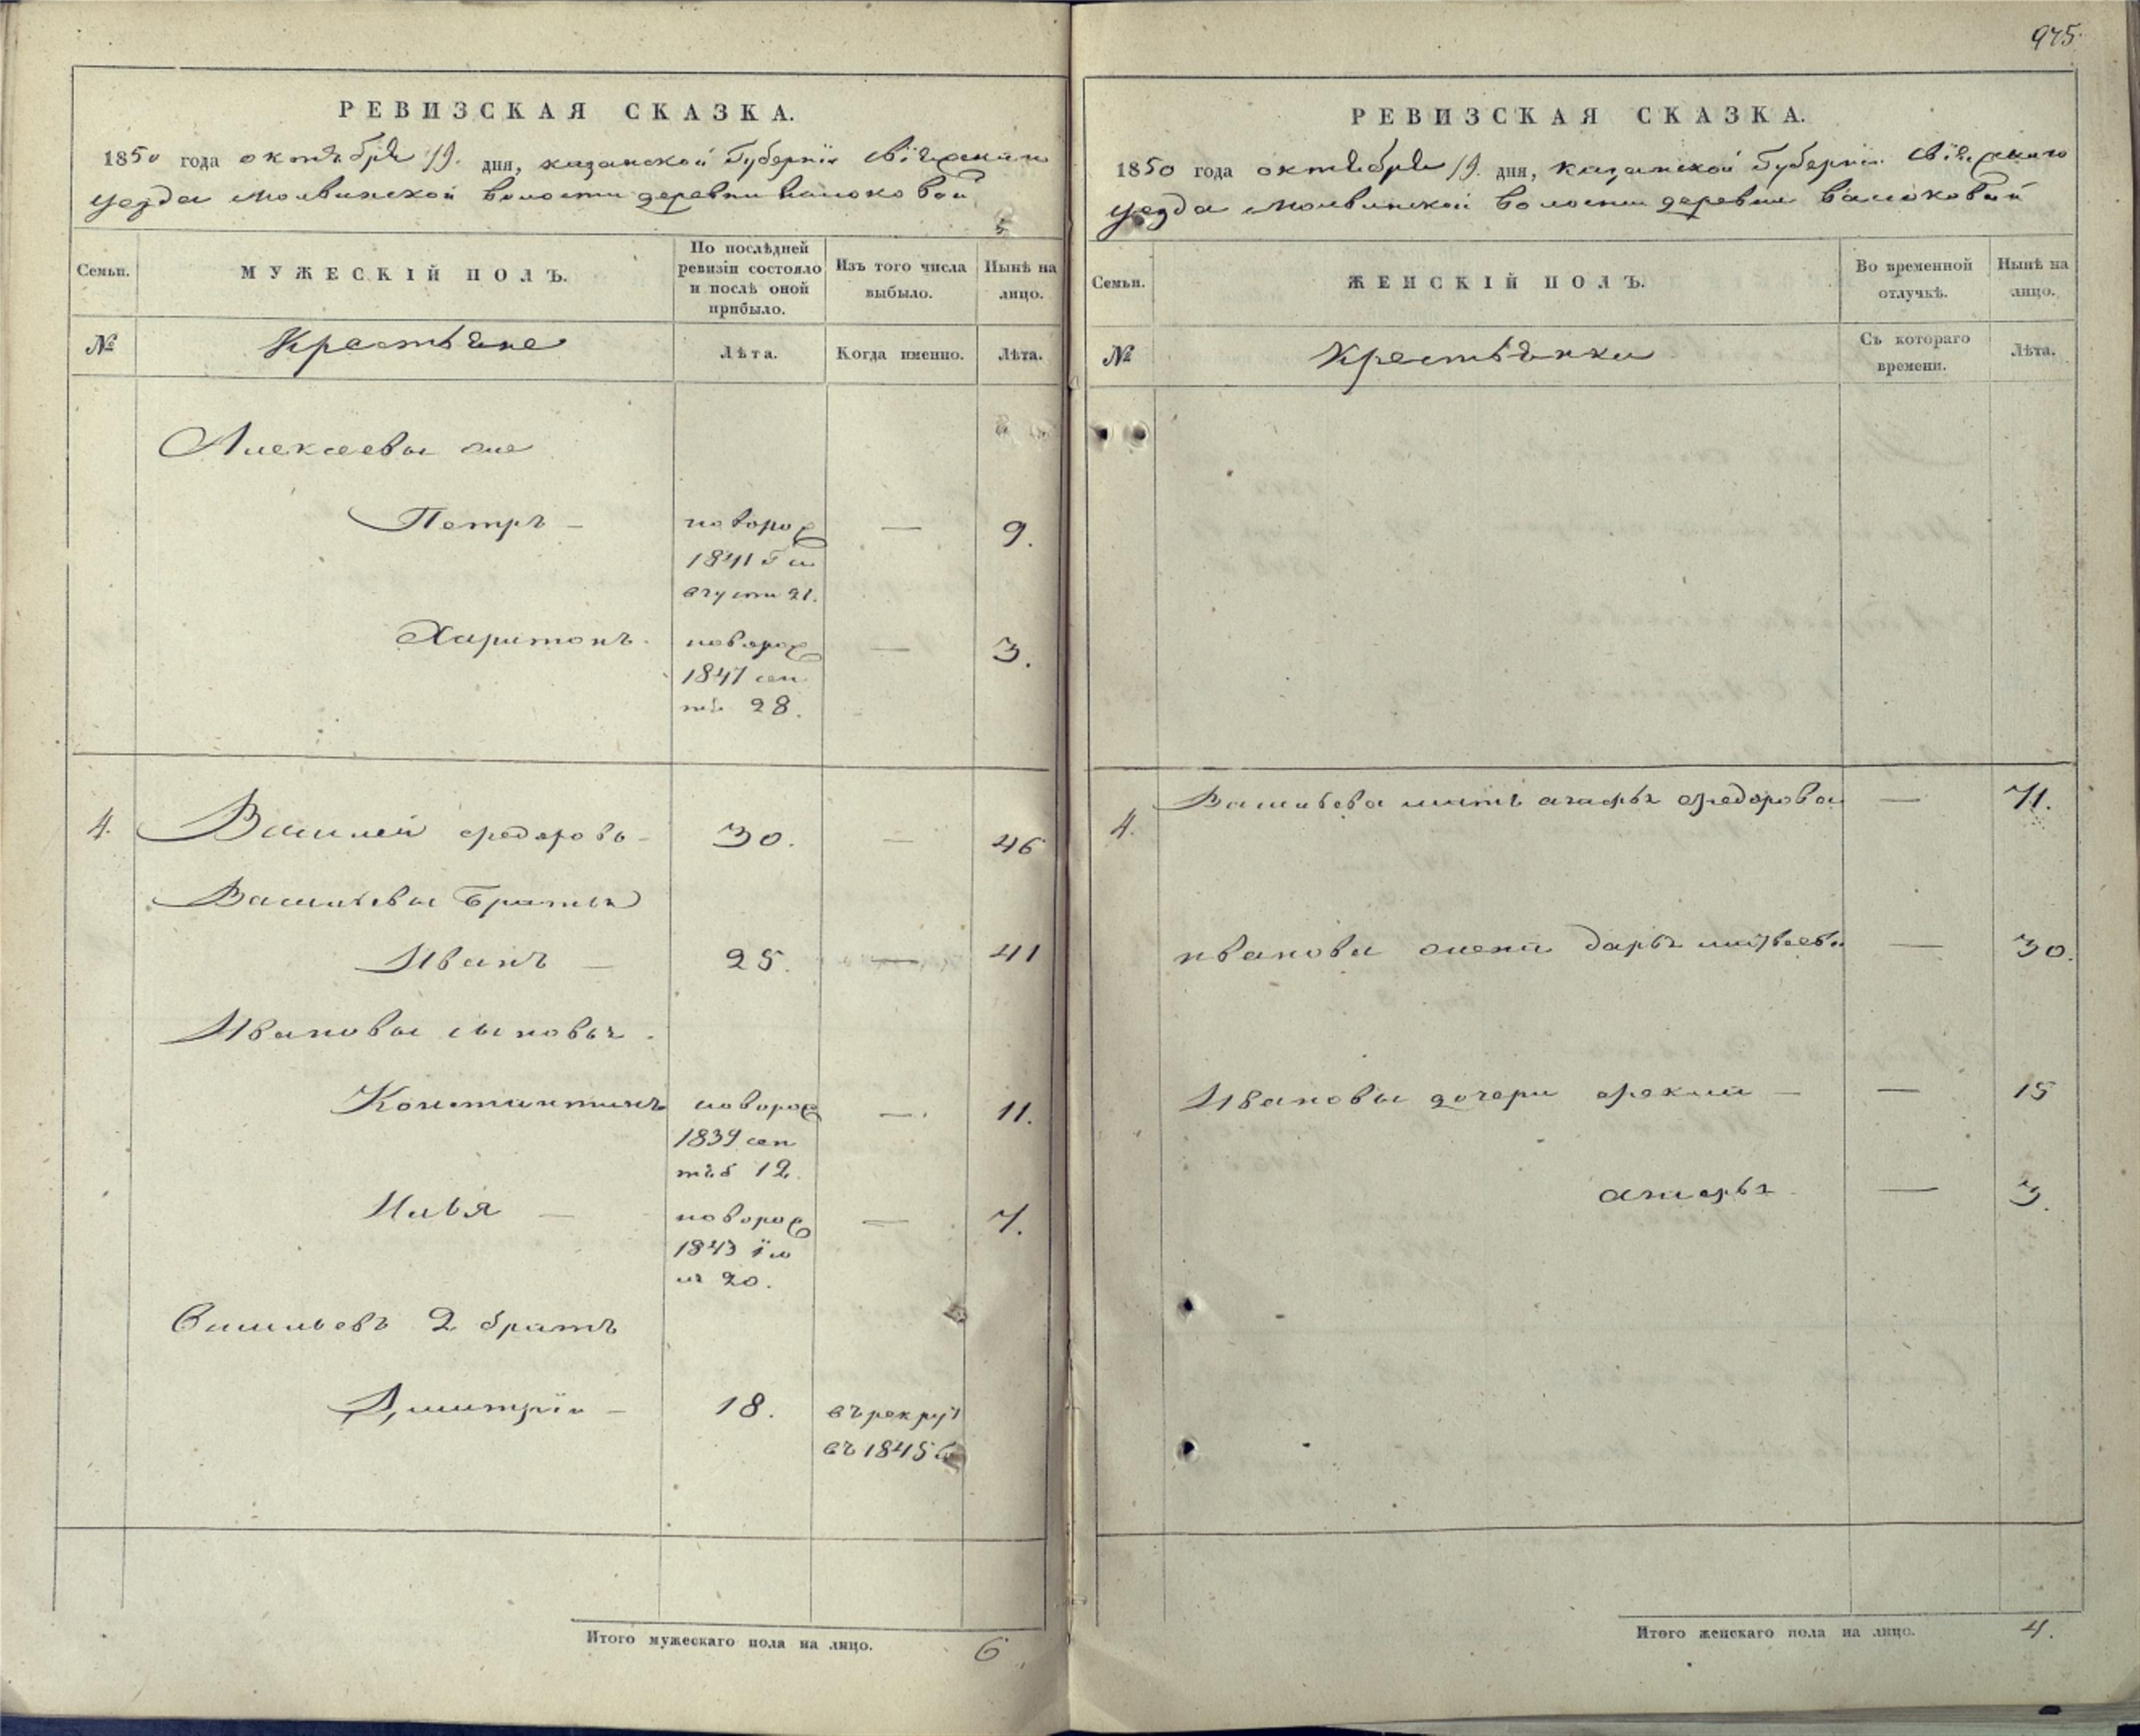 975.
РЕВИЗСКАЯ СКАЗКА.
1850 года октября 19. дня, казанской Губернiи Свiяжскаго
уезда Молвинской волости деревни васюковой
Семьи.
МУЖЕСКIЙ ПОЛЪ.
По послѣдней ревизiи состояло и послѣ оной прибыло.
Изъ того числа выбыло.
Нынѣ на лицо.
№
Крестьяне
Лѣта.
Когда именно.
Лѣта.
Алексеевы
Петръ — новорож — 9.
1841 Г ав
густа 21.
Харитонъ. новорож — 3.
1847 сен
тя 28.
4. Василей федоровъ — 30. — 46
Васильевы братья
Иванъ — 25. — 41
Ивановы сыновья.
Константинъ новорож —. 11.
1839 сен
тяб 12.
Илья — новорож — 7.
1843 iю
ля 20.
Васильевъ 2 братъ
Дмитрiй — 18. въ рекрут
въ 1845
Итого мужескаго пола на лицо. 6
РЕВИЗСКАЯ СКАЗКА.
1850 года октября 19. дня, Казанской Губернiи Свiяжскаго
уезда Молвинской волости деревни васюковой
Семьи.
ЖЕНСКIЙ ПОЛЪ.
Во временной отлучкѣ.
Нынѣ на лицо.
№
Крестьянки
Съ котораго времени.
Лѣта.
4. Васильева мать агафья федорова — 71.
иванова жена дарья матвеева — 30.
Ивановы дочери фекла — — 15
— 3.
Итого женскаго пола на лицо. 4.